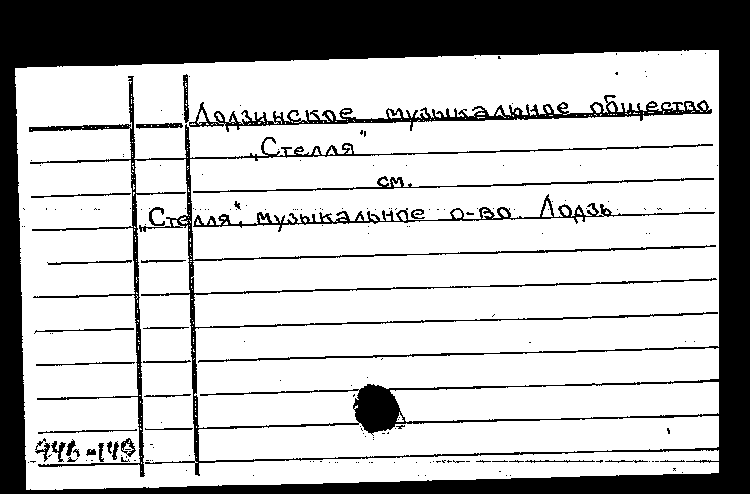 Лодзинское музыкальное общество
„Стелля"
см.
„Стелля", музыкальное о-во. Лодзь